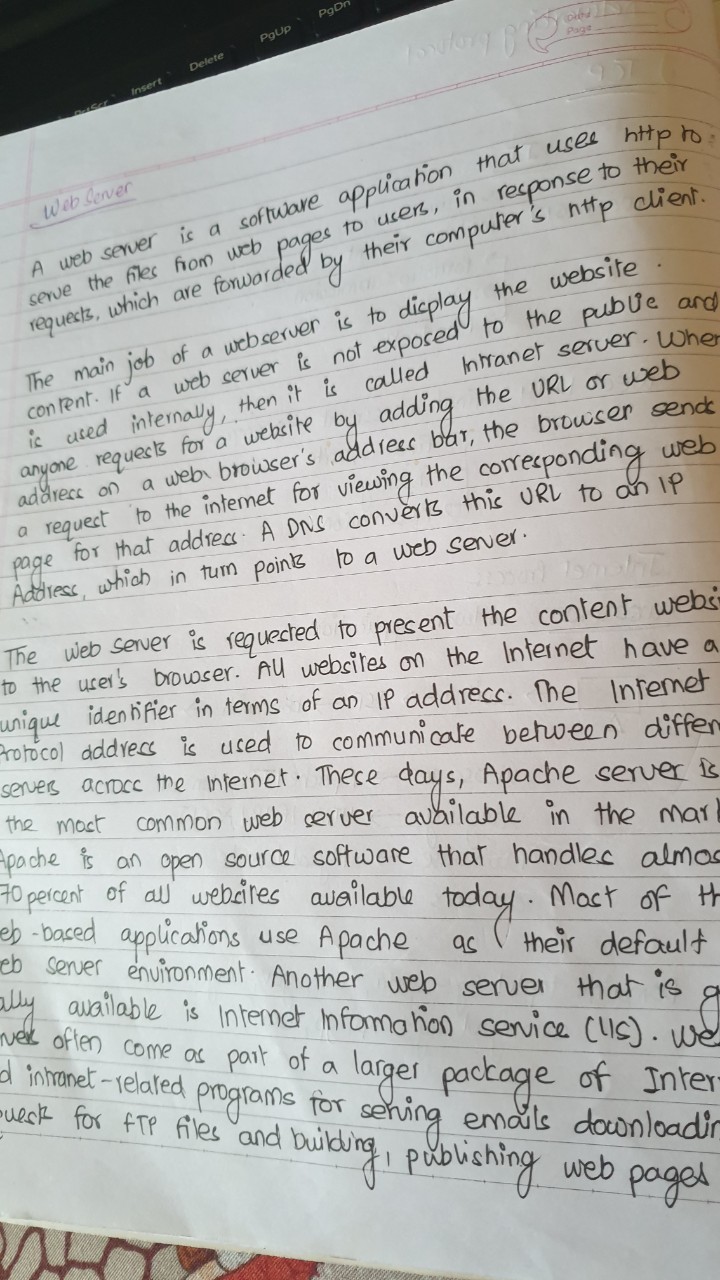 PgDn
PgUp
Delete
Insert
PrtScr
Page
Web Server
A web server is a software application that uses http to
serve the files from web pages to users, in response to their
requests, which are forwarded by their computer's http client.
The main job of a webserver is to display the website
content. If a web server is not exposed to the public and
is used internally, then it is called Intranet server. When
anyone requests for a website by adding the URL or web
address on a web browser's address bar, the browser sends
a request to the internet for viewing the corresponding web
page for that address. A DNS converts this URL to an IP
Address, which in turn points to a web server.
The Web Server is requested to present the content websi
to the user's browser. All websites on the Internet have a
unique identifier in terms of an IP address. The Internet
Protocol address is used to communicate between differen
servers across the internet. These days, Apache server is
the most common web server available in the mar
Apache is an open source software that handles almos
70 percent of all websites available today. Most of th
eb-based applications use Apache as their default
eb server environment. Another web server that is g
ally available is Internet Information service (IIS). We
vers often come as part of a larger package of Inter
d intranet-related programs for sening emails downloadin
quest for FTP files and building, publishing web pages